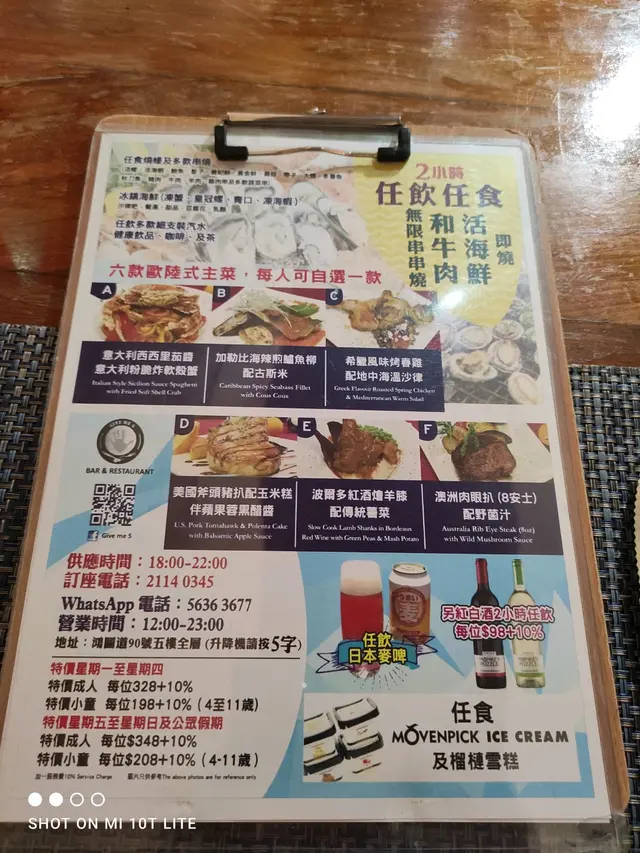 任食燒蠔及多款串燒
冰鎮海鮮(凍蟹、皇冠螺、青口、凍海蝦)
任飲多款細支裝汽水
健康飲品、咖啡、及茶
2小時
任飲任食
活海鮮
和牛肉
無限串串燒
即燒
六款歐陸式主菜，每人可自選一款
A
B
C
意大利西西里茄醬
意大利粉脆炸軟殼蟹
Italian Style Sicilion Sauce Spaghetti
with Fried Soft Shell Crab
加勒比海辣煎鱸魚柳
配古斯米
Caribbean Spicy Seabass Fillet
with Cous Cous
希臘風味烤春雞
配地中海溫沙律
Greek Flavour Roasted Spring Chicken
& Mediterranean Warm Salad
GIVE ME 5
BAR & RESTAURANT
Give me 5
D
E
F
美國斧頭豬扒配玉米糕
伴蘋果蓉黑醋醬
U.S. Pork Tomahawk & Polenta Cake
with Balsamic Apple Sauce
波爾多紅酒燴羊膝
配傳統薯菜
Slow Cook Lamb Shanks in Bordeaux
Red Wine with Green Peas & Mash Potato
澳洲肉眼扒 (8安士)
配野菌汁
Australia Rib Eye Steak (8oz)
with Wild Mushroom Sauce
供應時間：18:00-22:00
訂座電話：2114 0345
WhatsApp 電話：5636 3677
營業時間：12:00-23:00
地址：鴻圖道90號五樓全層 (升降機請按5字)
特價星期一至星期四
特價成人 每位328+10%
特價小童 每位198+10% (4至11歲)
特價星期五至星期日及公眾假期
特價成人 每位$348+10%
特價小童 每位$208+10% (4-11歲)
設一服務費10% Service Charge 圖片只供參考The above photos are for reference only
うまい
麦
任飲
日本麥啤
另紅白酒2小時任飲
每位$98+10%
任食
MÖVENPICK ICE CREAM
及榴槤雪糕
SHOT ON MI 10T LITE